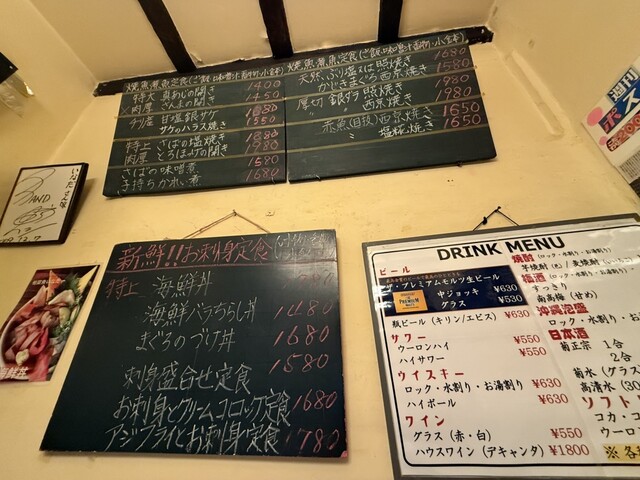 焼魚煮魚定食(ご飯・味噌汁・香物・小鉢)
特大 真あじの開き 1400
肉厚 さんまの開き 1450
甘塩 銀サケ
サケのハラス焼き 1550
特上 さばの塩焼き
肉厚 とろほっけの開き 1980
さばの味噌煮 1580
子持ちかれい煮 1680
焼魚煮魚定食(ご飯・味噌汁・香物・小鉢)
天然ぶり塩又は照焼き 1680
かじきまぐろ西京焼き 1580
厚切 銀ダラ照焼き 1980
〃 西京焼き 1980
赤魚(目抜)西京焼き 1650
〃 塩糀焼き 1650
新鮮!!お刺身定食
特上 海鮮丼
海鮮バラちらし丼
まぐろのづけ丼 1680
1580
刺身盛合せ定食
お刺身とクリームコロッケ定食 1680
アジフライとお刺身定食 1780
海鮮丼
DRINK MENU
ビール
ザ・プレミアムモルツ生ビール
中ジョッキ ¥630
グラス ¥530
瓶ビール (キリン/エビス) ¥630
サワー
ウーロンハイ ¥550
ハイサワー ¥550
ウイスキー
ロック・水割り・お湯割り ¥630
ハイボール ¥630
ワイン
グラス (赤・白) ¥550
ハウスワイン (アキャンタ) ¥1800
焼酎 (ロック・水割り・お湯割り)
梅酒 (ロック・水割り・お湯割り)
すっきり
南高梅 (甘め)
沖縄泡盛
ロック・水割り・お
日本酒
菊正宗 1合
2合
菊水 (グラス
高清水 (30
ソフト
コカ・コ
ウーロン
※ 各種